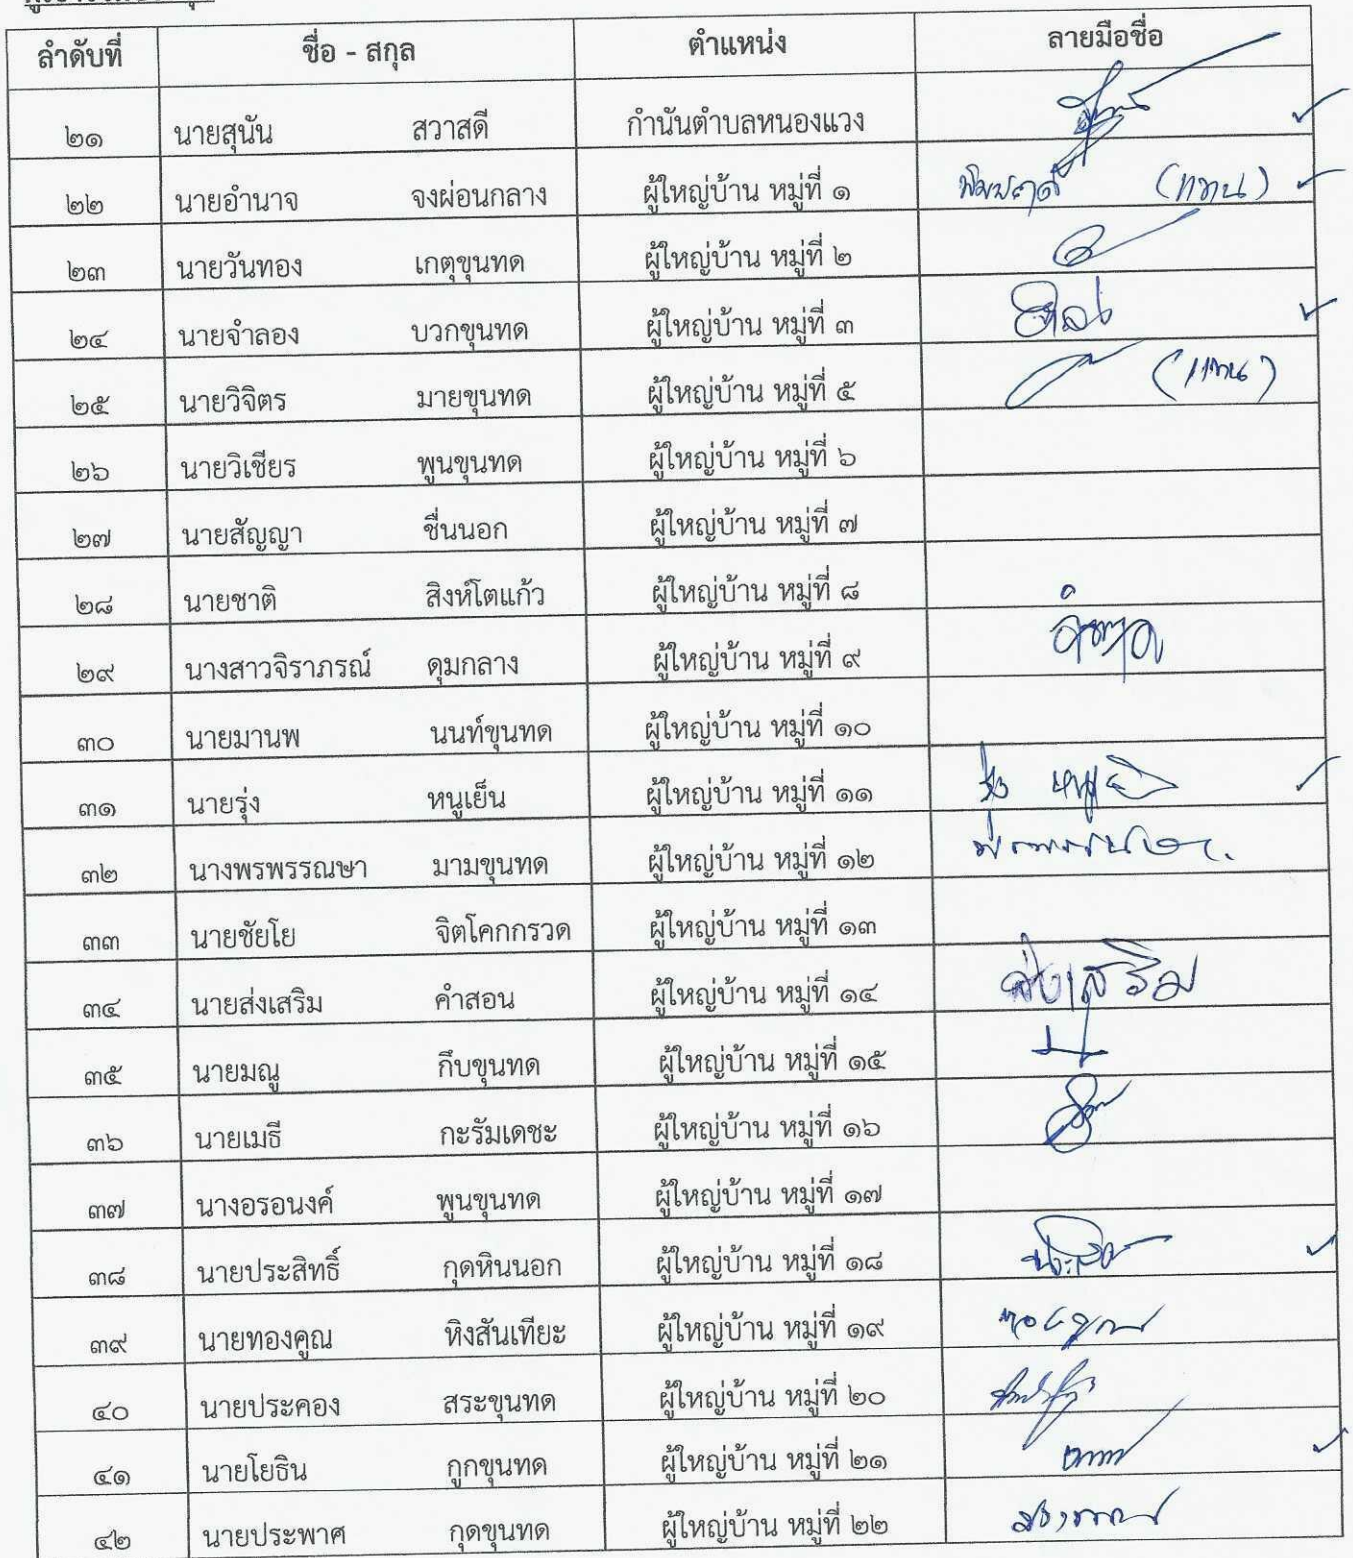 ลำดับที่ ชื่อ - สกุล ตำแหน่ง ลายมือชื่อ
๒๑ นายสุนัน สวาสดี กำนันตำบลหนองแวง
๒๒ นายอำนาจ จงผ่อนกลาง ผู้ใหญ่บ้าน หมู่ที่ ๑ (แทน)
๒๓ นายวันทอง เกตุขุนทด ผู้ใหญ่บ้าน หมู่ที่ ๒
๒๔ นายจำลอง บวกขุนทด ผู้ใหญ่บ้าน หมู่ที่ ๓
๒๕ นายวิจิตร มายขุนทด ผู้ใหญ่บ้าน หมู่ที่ ๕ (แทน)
๒๖ นายวิเชียร พูนขุนทด ผู้ใหญ่บ้าน หมู่ที่ ๖
๒๗ นายสัญญา ชื่นนอก ผู้ใหญ่บ้าน หมู่ที่ ๗
๒๘ นายชาติ สิงห์โตแก้ว ผู้ใหญ่บ้าน หมู่ที่ ๘
๒๙ นางสาวจิราภรณ์ ดุมกลาง ผู้ใหญ่บ้าน หมู่ที่ ๙
๓๐ นายมานพ นนท์ขุนทด ผู้ใหญ่บ้าน หมู่ที่ ๑๐
๓๑ นายรุ่ง หนูเย็น ผู้ใหญ่บ้าน หมู่ที่ ๑๑
๓๒ นางพรพรรณษา มามขุนทด ผู้ใหญ่บ้าน หมู่ที่ ๑๒
๓๓ นายชัยโย จิตโคกกรวด ผู้ใหญ่บ้าน หมู่ที่ ๑๓
๓๔ นายส่งเสริม คำสอน ผู้ใหญ่บ้าน หมู่ที่ ๑๔ ส่งเสริม
๓๕ นายมณู กึบขุนทด ผู้ใหญ่บ้าน หมู่ที่ ๑๕
๓๖ นายเมธี กะรัมเดชะ ผู้ใหญ่บ้าน หมู่ที่ ๑๖
๓๗ นางอรอนงค์ พูนขุนทด ผู้ใหญ่บ้าน หมู่ที่ ๑๗
๓๘ นายประสิทธิ์ กุดหินนอก ผู้ใหญ่บ้าน หมู่ที่ ๑๘
๓๙ นายทองคูณ หิงสันเทียะ ผู้ใหญ่บ้าน หมู่ที่ ๑๙
๔๐ นายประคอง สระขุนทด ผู้ใหญ่บ้าน หมู่ที่ ๒๐
๔๑ นายโยธิน กูกขุนทด ผู้ใหญ่บ้าน หมู่ที่ ๒๑
๔๒ นายประพาศ กุดขุนทด ผู้ใหญ่บ้าน หมู่ที่ ๒๒